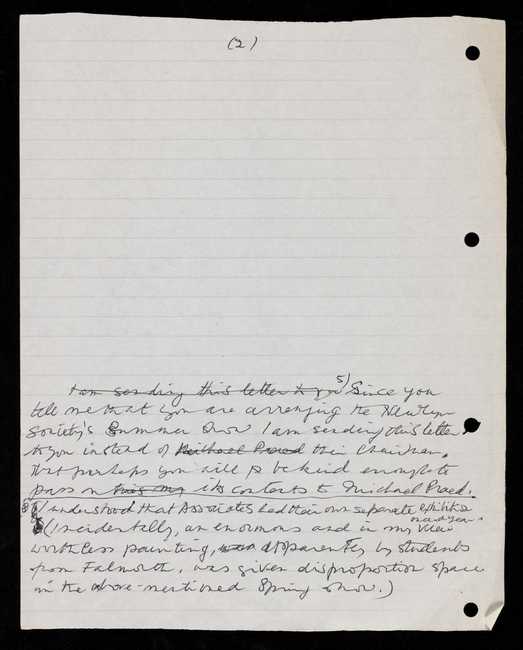 (2)
I am sending this letter to you 5) Since you
tell me that you are arranging the Newlyn
Society's Summer Show I am sending this letter
to you instead of Michael Praed their Chairman.
But perhaps you will be kind enough to
pass on its contents to Michael Praed.
I understood that Associates had their own separate exhibition
once a year
(Incidentally, an enormous and in my view
worthless painting, apparently by students
from Falmouth, was given disproportion space
in the above-mentioned Spring show.)